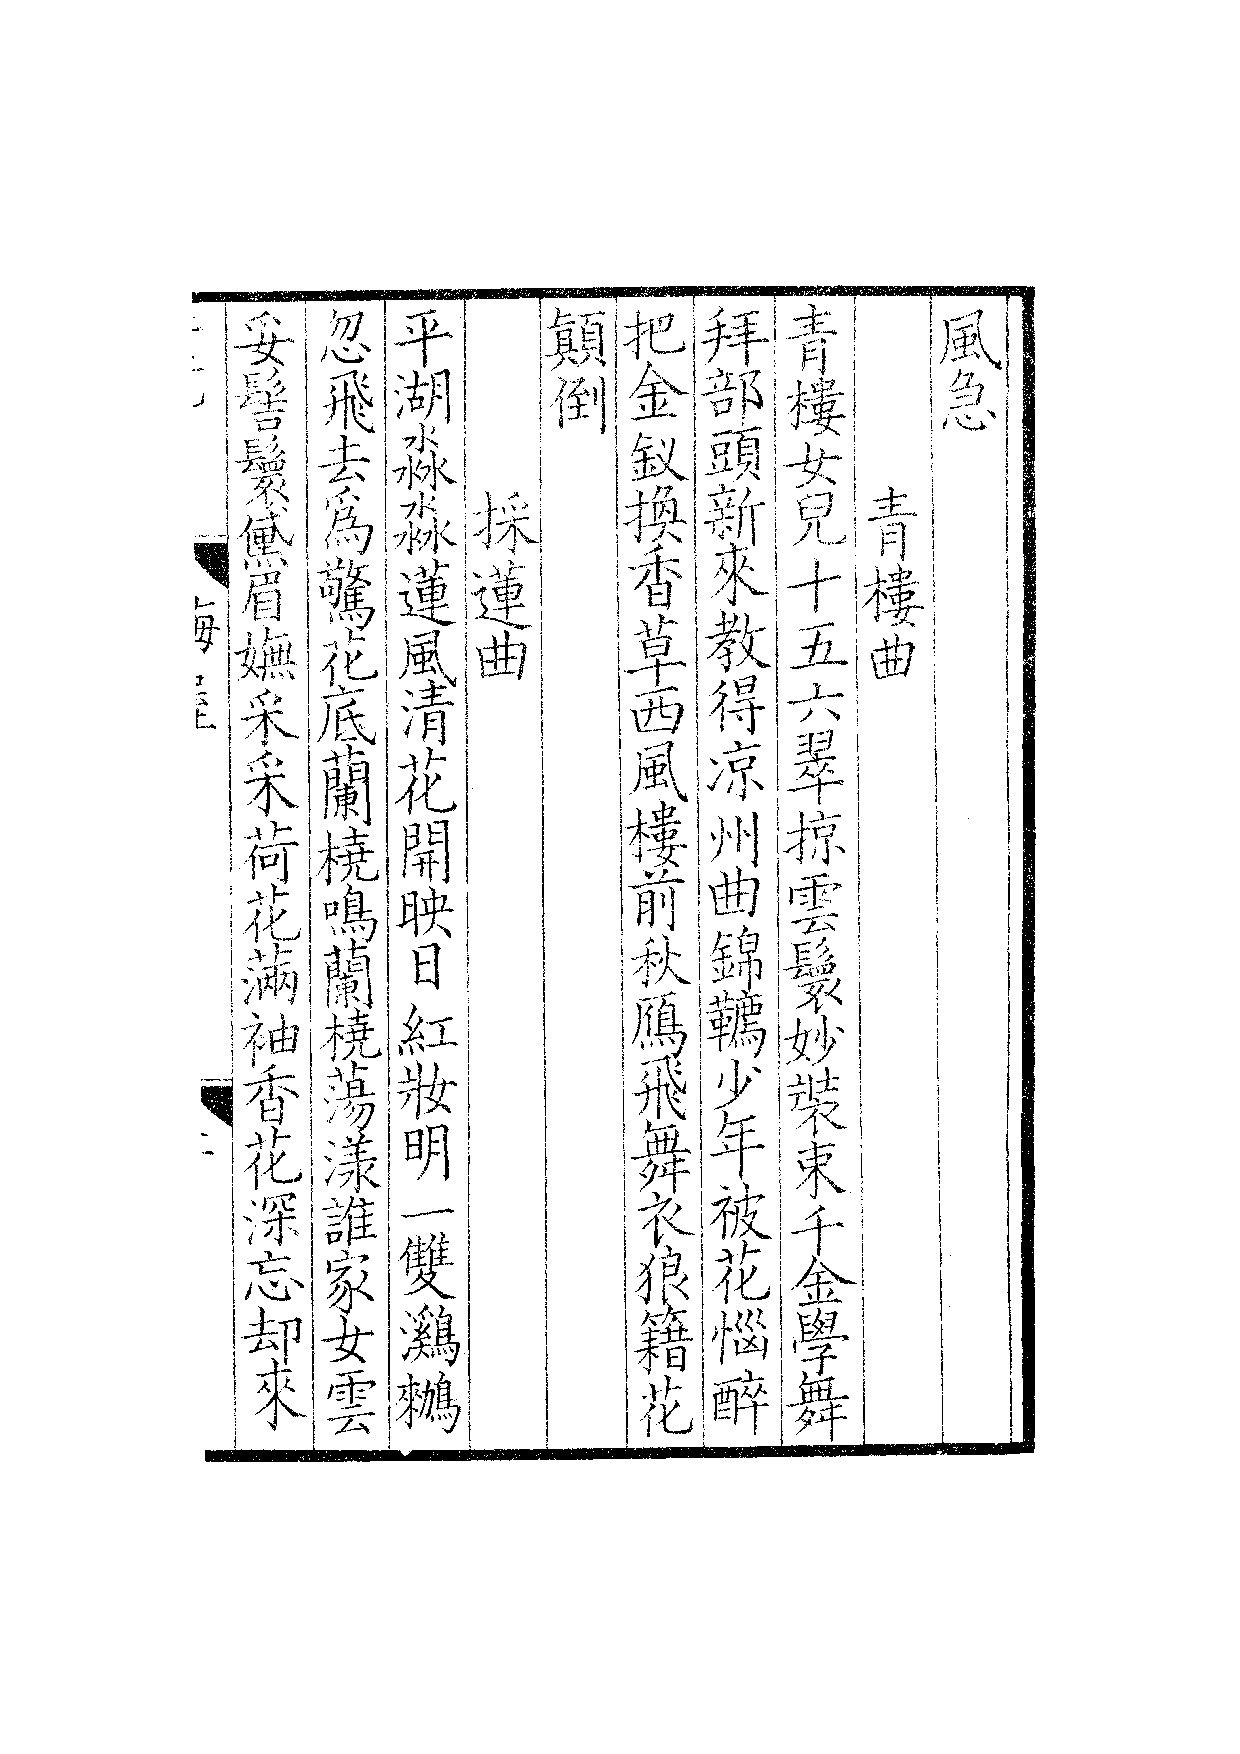 風急
青樓曲
青樓女兒十五六翠掠雲鬟妙裝束千金學舞
拜部頭新來教得凉州曲錦韉少年被花惱醉
把金釵換香草西風樓前秋鴈飛舞衣狼籍花
顛倒
採蓮曲
平湖淼淼蓮風清花開映日紅妝明一雙鸂鶒
忽飛去爲驚花底蘭橈鳴蘭橈蕩漾誰家女雲
妥髻鬟黛眉嫵采采荷花滿袖香花深忘却來